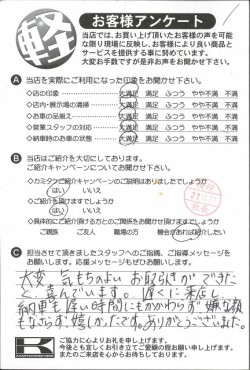 軽
お客様アンケート
当店では、お買い上げ頂いたお客様の声を可能
な限り現場に反映し、お客様により良い商品と
サービスを提供する事に努めています。
大変お手数ですが是非お声をお聞かせ下さい。
A 当店を実際にご利用になった印象をお聞かせ下さい。
◇店の印象 大満足 満足 ふつう やや不満 不満
◇店内・展示場の清掃 大満足 満足 ふつう やや不満 不満
◇お車の品揃え 大満足 満足 ふつう やや不満 不満
◇営業スタッフの対応 大満足 満足 ふつう やや不満 不満
◇納車時のお車の状態 大満足 満足 ふつう やや不満 不満
B 当店はご紹介を大切にしております。
ご紹介キャンペーンについてお聞かせ下さい。
◇カミタケご紹介キャンペーンのご説明はありましたでしょうか
はい いいえ
◇ご紹介を頂けますでしょうか
はい いいえ
◇具体的にご紹介頂ける方とのご関係をお聞かせ頂けますでしょうか
ご親族 ご友人 職場の方 機会があれば紹介したい
C 担当させて頂きましたスタッフへのご指摘、ご指導メッセージを
お願いします。応援メッセージもぜひお願いします。
大変 気もちのよい お取らきが できた
と、喜んでいます。遅くに来店し
納車も遅い時間にもかかわらず 嫌な顔
もなさらず 嬉しかったです。ありがとうございました。
K
ご協力に心よりお礼を申し上げます。
今後とも宜しくお引き立てご愛顧の程お願い申し上げます。
またのご来店を心からお待ちしております。